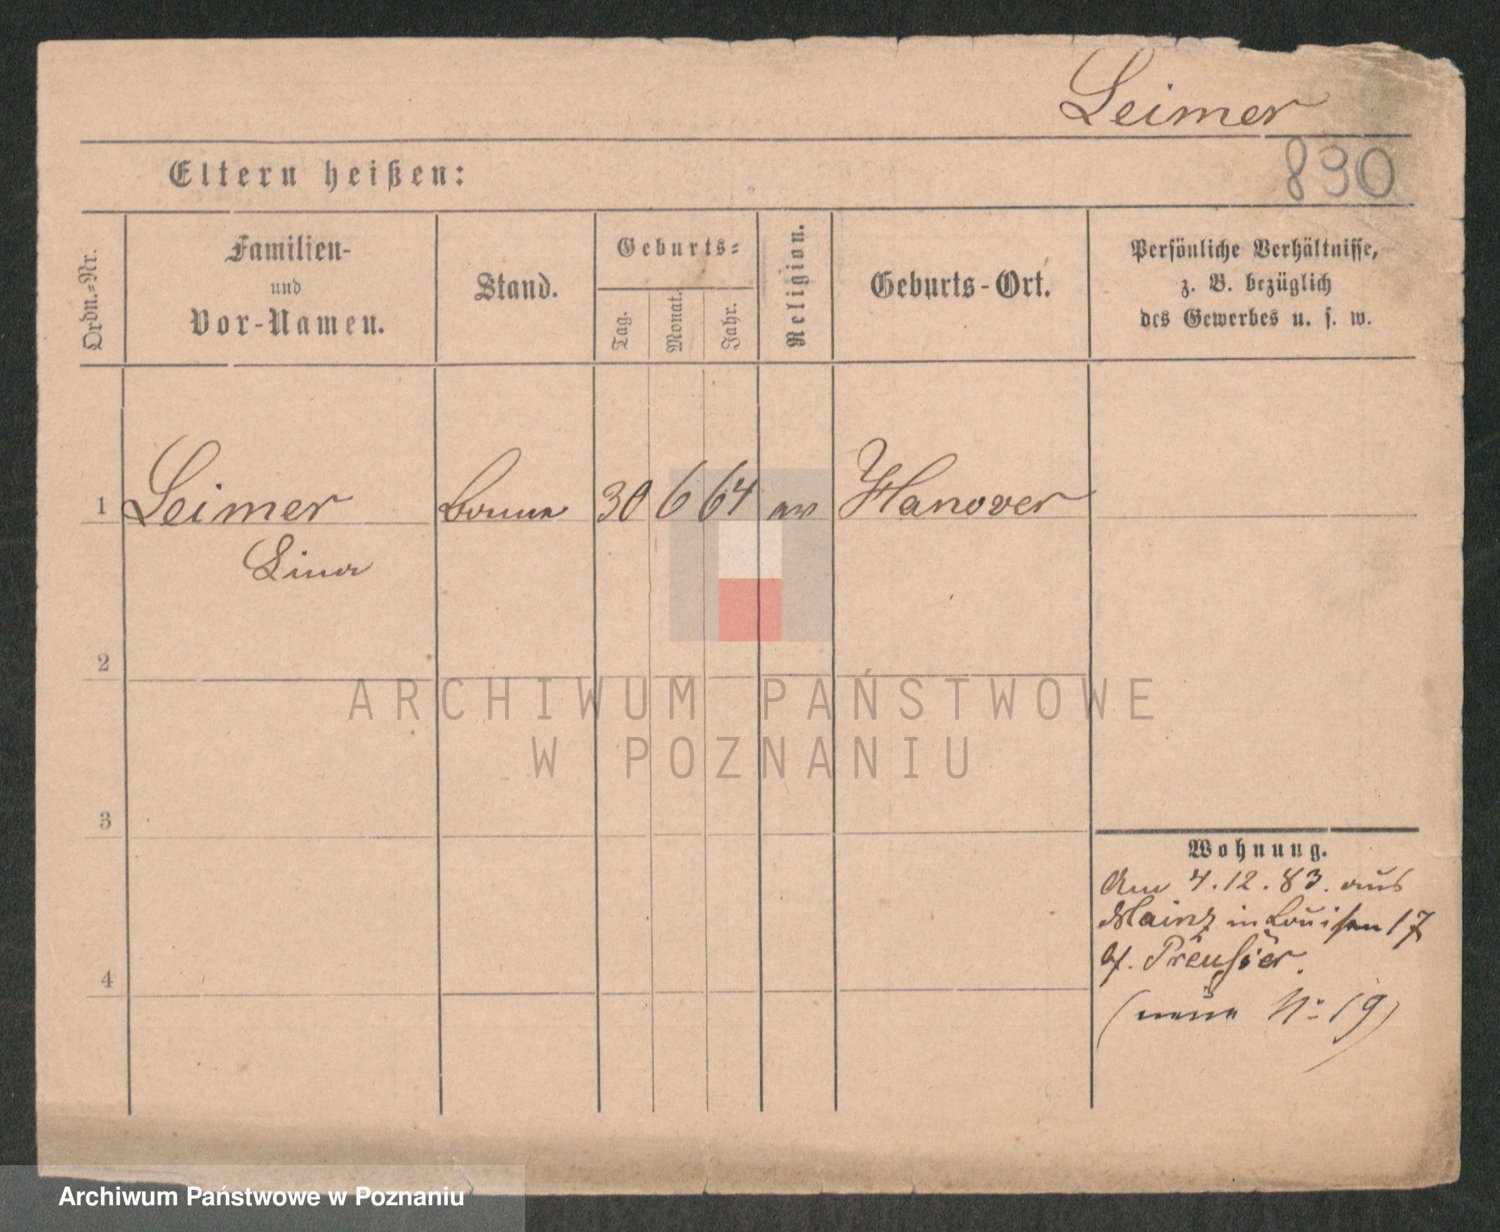 Leimer
Eltern heißen:
890
Ordn.-Nr.
Familien-
und
Vor-Namen.
Stand.
Geburts-
Tag.
Monat.
Jahr.
Religion.
Geburts-Ort.
Persönliche Verhältnisse,
z. B. bezüglich
des Gewerbes u. s. w.
1 Leimer Bonne 30 6 64 ev Hanover
Lina
2
3
4
Wohnung.
Am 4.12.83. aus
Mainz in Louisen 17
b. Preußer.
(neue No 19)
ARCHIWUM PAŃSTWOWE
W POZNANIU
Archiwum Państwowe w Poznaniu